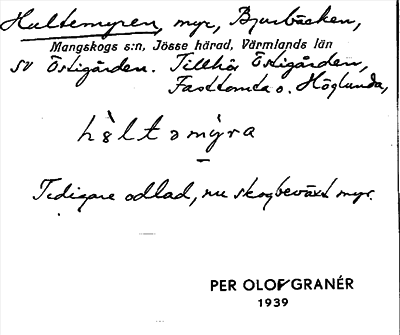 Hultemyren, myr, Bjurbäcken,
Mangskogs s:n, Jösse härad, Värmlands län
SV Östigården. Tillhör Östigården,
Fasttomta o. Höglunda,
hùltəmýra
Tidigare odlad, nu skogbeväxt myr.
PER OLOF GRANÉR
1939